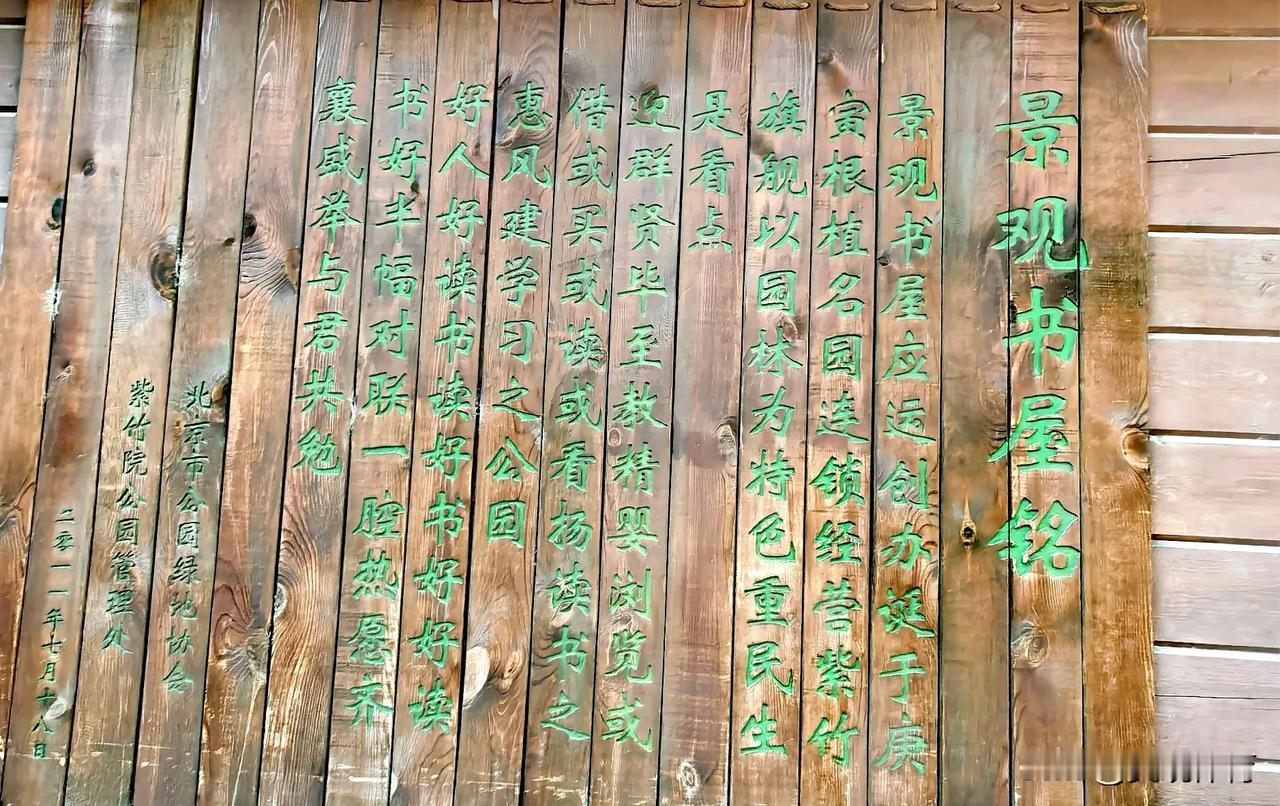 景观书屋铭
景观书屋应运创办诞于庚
寅根植名园连锁经营紫竹
旗舰以园林为特色重民生
是看点
迎群贤毕至教精婴浏览或
借或买或读或看扬读书之
惠风建学习之公园
好人好读书读好书好好读
书好半幅对联一腔热愿齐
襄盛举与君共勉
北京市公园绿地协会
紫竹院公园管理处
二零一一年七月十八日